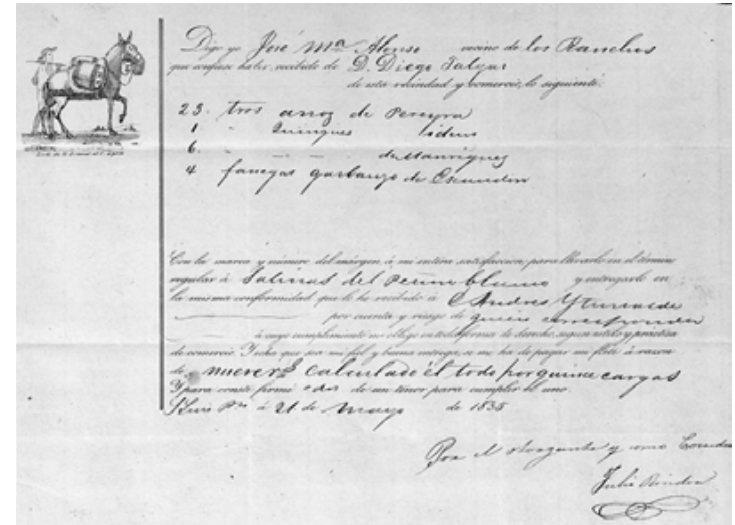 Digo yo José Mª Alonso vecino de los Ranchos
que confieso haber recibido de D. Diego
de esta vecindad y comercio, lo siguiente:
23. tros arroz de Pereyra
1 " Quinqués
6. " de Manriquez
4 fanegas garbanzo de
Con la marca y número del márgen, á mi entera satisfaccion, para llevarlo en el término
regular á Salinas del Peñon blanco y entregarlo en
la misma conformidad que lo he recibido á D. Andres
por cuenta y riesgo de quien corresponda
á cuyo cumplimiento me obligo en toda forma de derecho, segun estilo y práctica
de comercio. Y echa que sea mi fiel y buena entrega, se me ha de pagar mi flete á razon
de nueve rs calculado el todo por quince cargas
Y para constancia firmé dos de un tenor para cumplir el uno.
S. Luis Pí á 21 de Mayo de
Por el otorgante y como Corredor
Julio